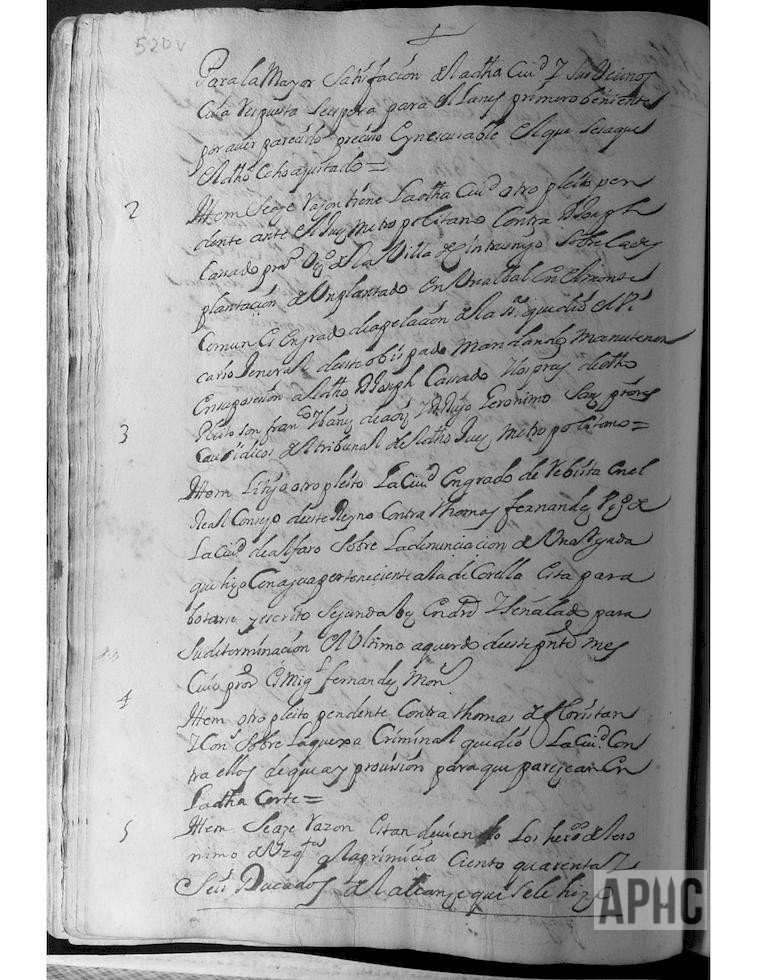 520v
Para la Mayor Satisfacion de la dha Ciud. Y sus Vecinos
Cuia Respuesta se espera para el Lunes primero beniente
por aver parecido preciso Eynescusable el que se saque
el dho echo ajustado =
2 Ittem Se aze razon tiene la dha Ciud. otro pleito pen
dente ante el Juez metropolitano Contra Joseph
Casado prro. Vezo. de la Villa de Zintruenigo Sobre la des
plantación de Un plantado En Unalbal En el monte
Comun Es En grado de apelación de la sa. que dio el Vi
cario General de este obispado Mandando manutener
En su posesión al dho Joseph Casado Y los pres. de dho
Pleito son franco. Ybañez de aoiz Y Gerónimo Sanz prores
3 Caussidicos del tribunal de dicho Juez metropolitano =
Ittem Litijo otro pleito La Ciud. En grado de Rebista en el
Real Consejo de este Reyno Contra thomas fernandez Vezo. de
La Ciud. de Alfaro Sobre La denunciacion de Una
que hizo Con agua perteneciente a la de Corella esta para
botarse y escrito Segunda bez En dro. Y señalado para
Su determinación el Ultimo aquerdo de este pnte mes
Cuio pror Es Migl. fernandez Mon
4 Ittem otro pleito pendente Contra thomas de floristan
Y Cons. Sobre La quexa Criminal que dió La Ciud. Con
tra ellos de que ay prouisión para que parezcan En
La dha Corte =
5 Ittem Se aze razon Estan deuiendo Los heros. de Jero
nimo de Vzqta. de la primicia Ciento quarenta Y
Seis Ducados de el alcanze que se le hizo
APHC